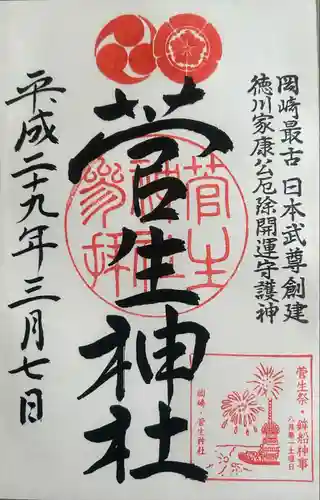 岡崎最古 日本武尊創建
徳川家康公厄除開運守護神
菅生神社
平成二十九年三月七日
菅生
参拝
菅生祭・鉾船神事
八月第一土曜日
岡崎・菅生神社